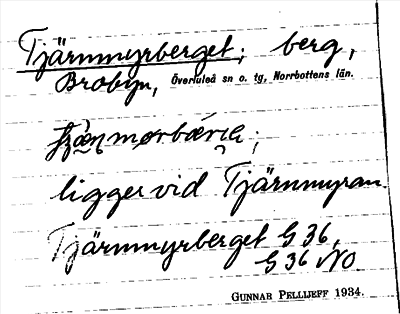 Tjärnmyrberget; berg,
Brobyn, Överluleå sn o. tg, Norrbottens län.
ligger vid Tjärnmyran.
Tjärnmyrberget G 36,
G 36 NO.
GUNNAR PELLIJEFF 1934.